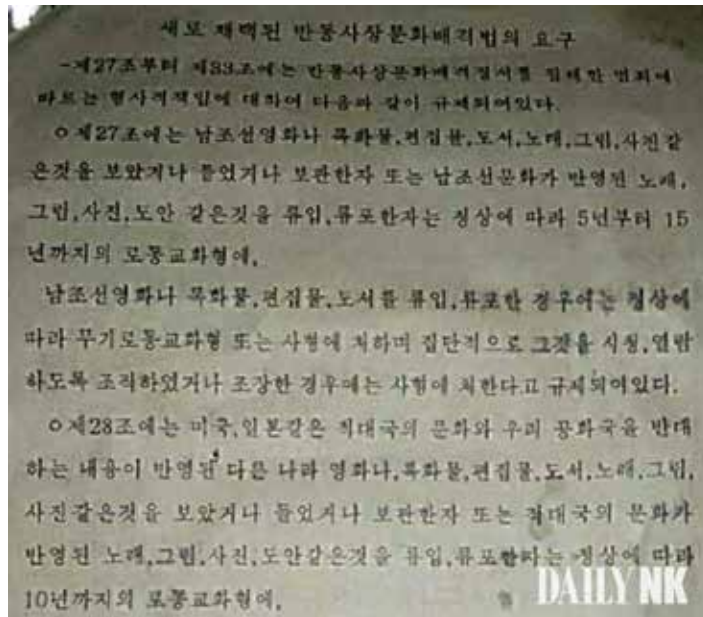 새로 채택된 반동사상문화배격법의 요구
-제27조부터 제33조에는 반동사상문화배격질서를 위반한 범죄에
따르는 형사적책임에 대하여 다음과 같이 규제되여있다.
○제27조에는 남조선영화나 록화물,편집물,도서,노래,그림,사진같
은것을 보았거나 들었거나 보관한자 또는 남조선문화가 반영된 노래,
그림,사진,도안 같은것을 류입,류포한자는 정상에 따라 5년부터 15
년까지의 로동교화형에,
남조선영화나 록화물,편집물,도서를 류입,류포한 경우에는 정상에
따라 무기로동교화형 또는 사형에 처하며 집단적으로 그것을 시청,열람
하도록 조직하였거나 조장한 경우에는 사형에 처한다고 규제되여있다.
○제28조에는 미국,일본같은 적대국의 문화와 우리 공화국을 반대
하는 내용이 반영된 다른 나라 영화나,록화물,편집물,도서,노래,그림,
사진같은것을 보았거나 들었거나 보관한자 또는 적대국의 문화가
반영된 노래,그림,사진,도안같은것을 류입,류포한자는 정상에 따라
10년까지의 로동교화형에,
DAILY NK